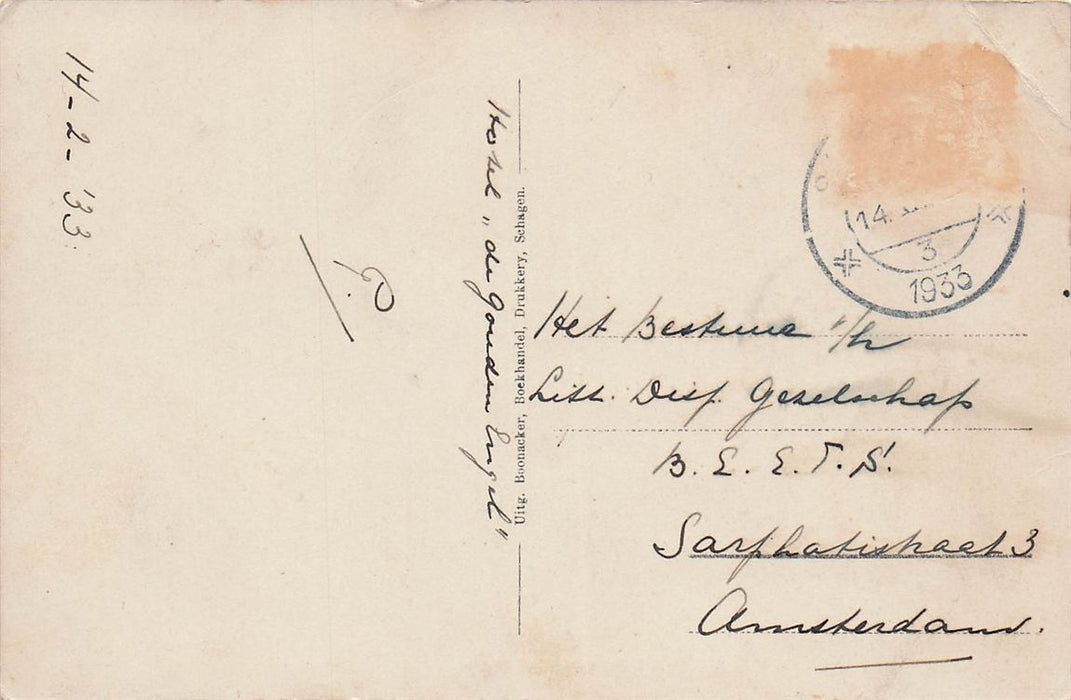 14-2-'33
P.
Hotel „de Gouden Engel"
Uitg. Boonacker, Boekhandel, Drukkery, Schagen.
14.
3
1933
Het Bestuur v/h
Litt. Disp. Gezelschap
B.E.E.T.S.
Sarphatistraat 3
Amsterdam.